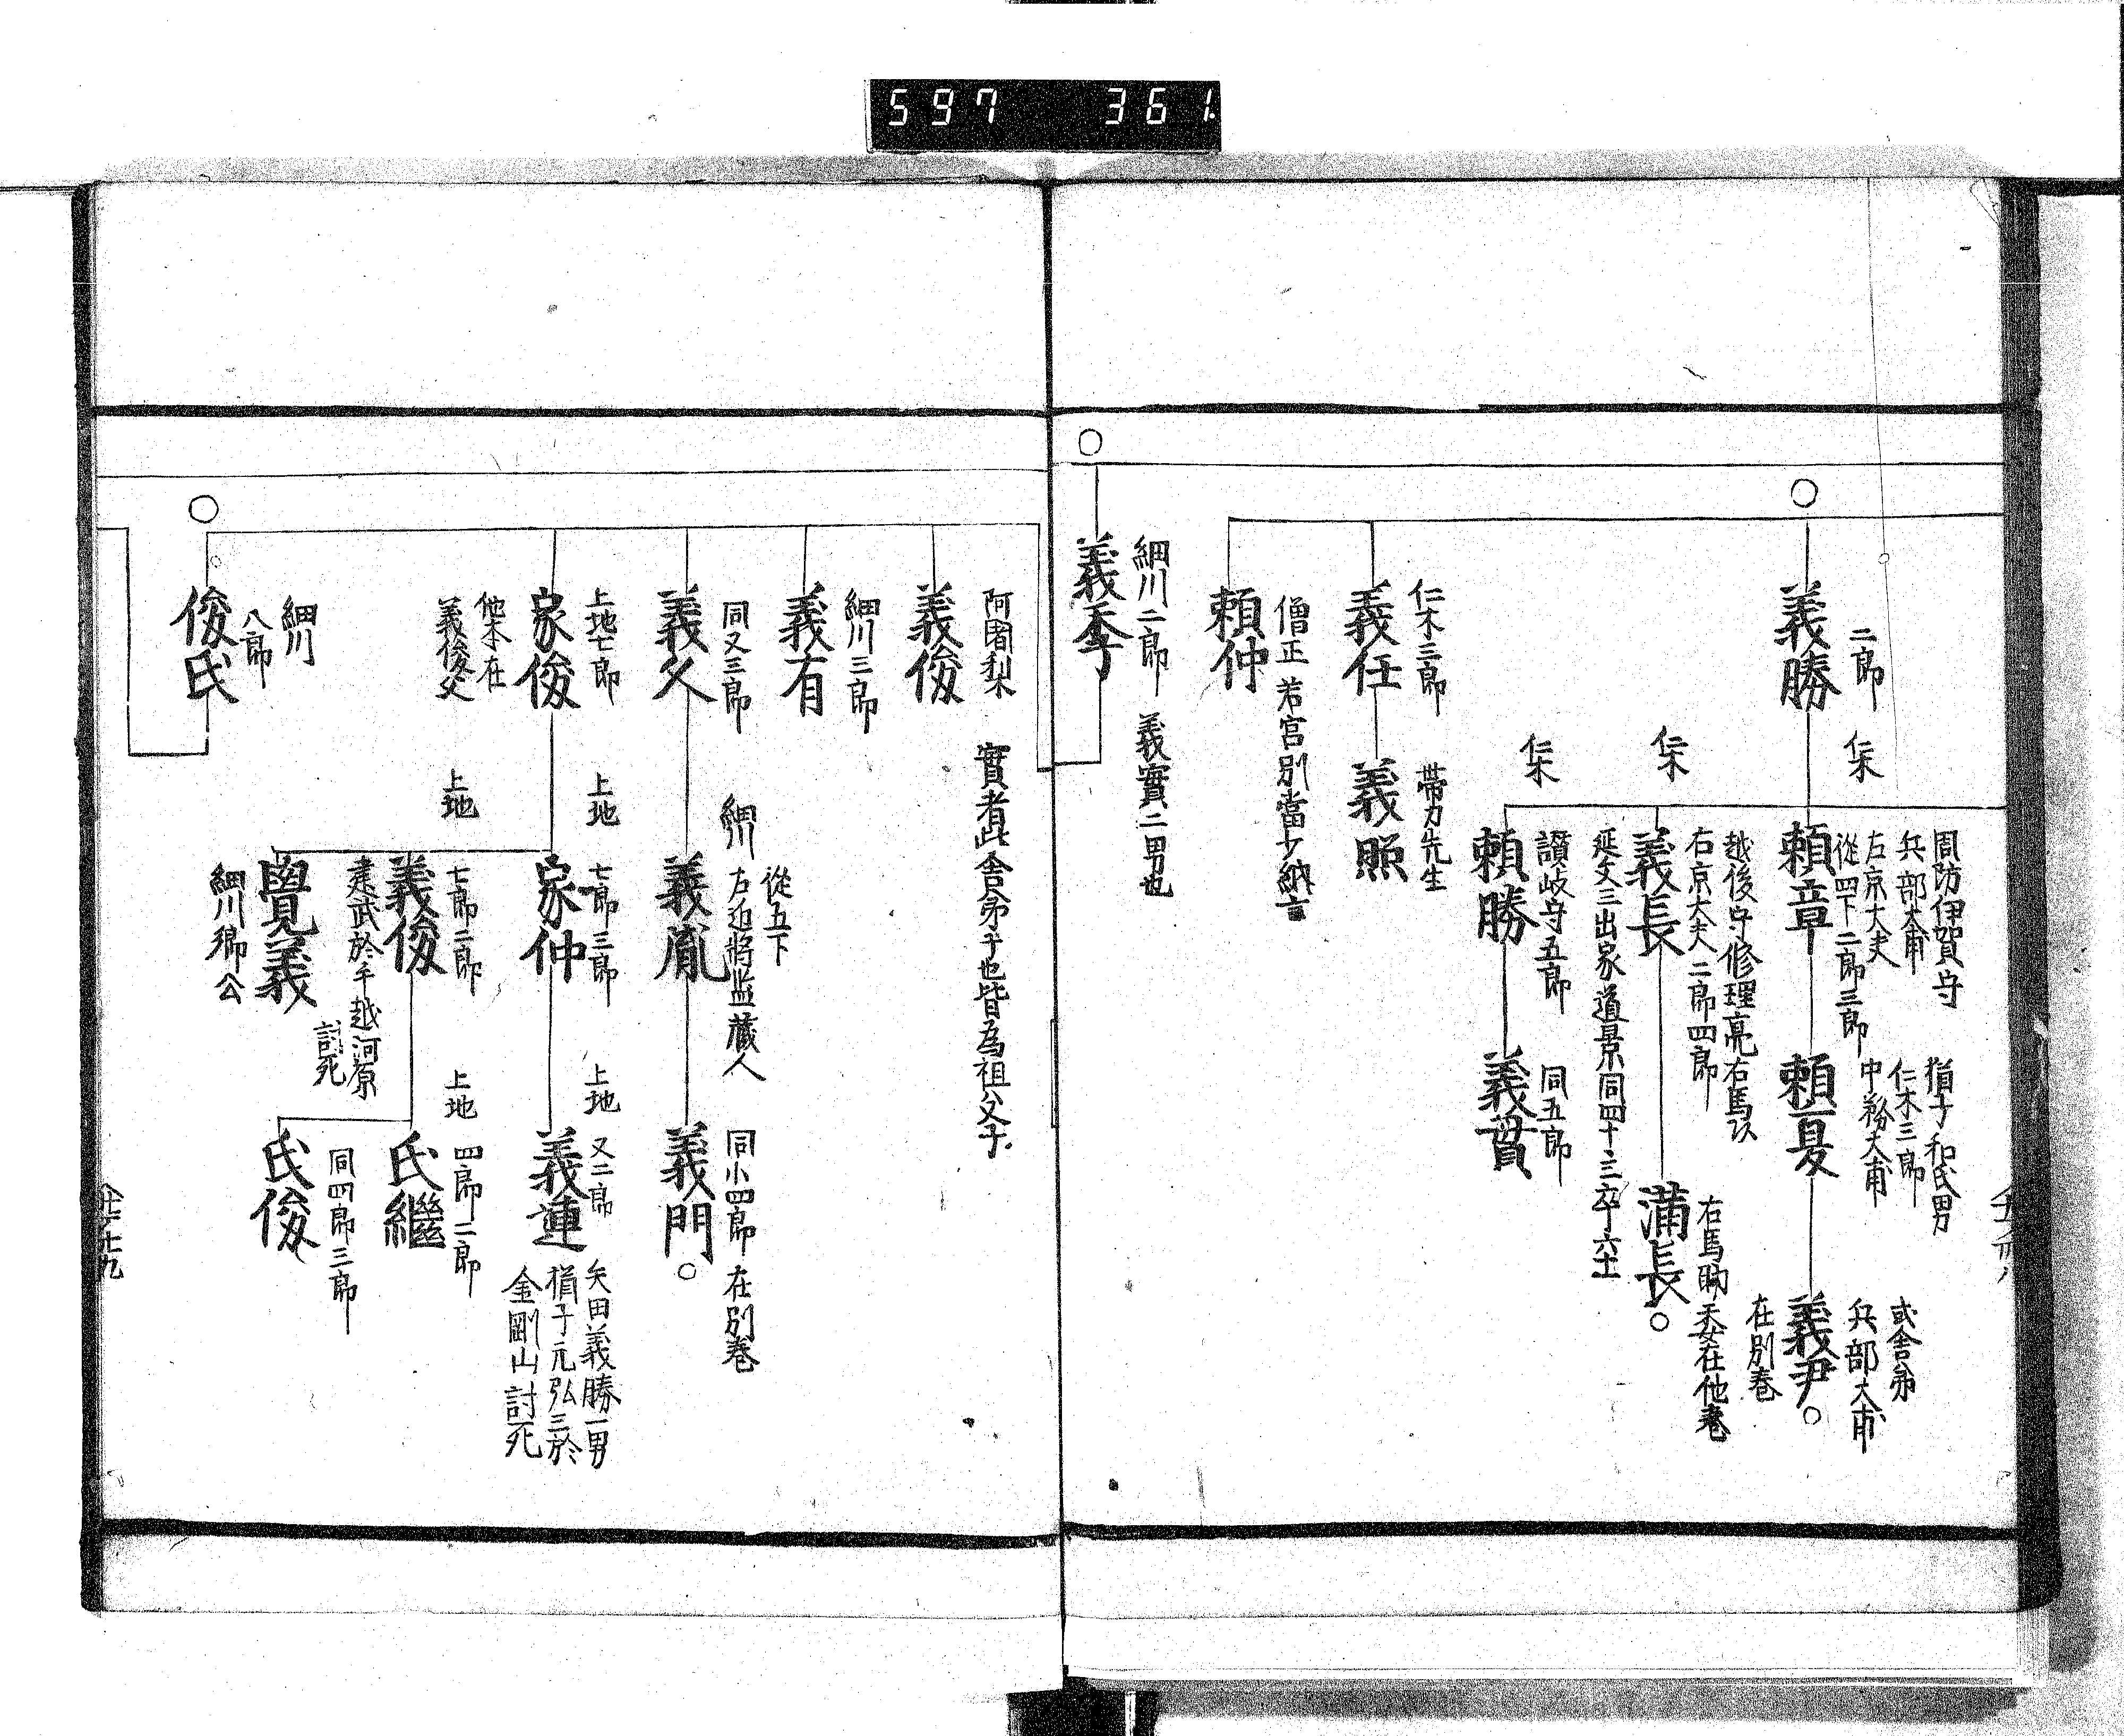 597 361
二郎
義勝
仁木
周防伊賀守
兵部大甫
左京大夫
從四下二郎三郎
頼章
猶子和氏男
仁木三郎
中務大甫
頼夏
或舍弟
兵部大甫
義尹
在別巻
仁木
越後守修理亮右馬以
右京大夫二郎四郎
義長
延文三出家道景同四十三卒六十
右馬助
在他巻
満長
仁木
讃岐守五郎
頼勝
同五郎
義貫
仁木三郎
義任
帶刀先生
義照
僧正若宮別當少納言
頼仲
細川二郎 義實二男也
義季
阿闍梨
實者此舍弟子也皆為祖父子
義俊
細川三郎
義有
同又三郎
義久
細川
從五下
左近將監藏人
義胤
同小四郎 在別巻
義門
上地七郎
家俊
他本在
義俊父
上地
七郎三郎
家仲
上地
又二郎
義連
矢田義勝一男
猶子元弘三於
金剛山討死
上地
七郎二郎
義俊
建武於手越河原
討死
上地
四郎二郎
氏繼
同四郎三郎
氏俊
覺義
細川郷公
細川
八郎
俊氏